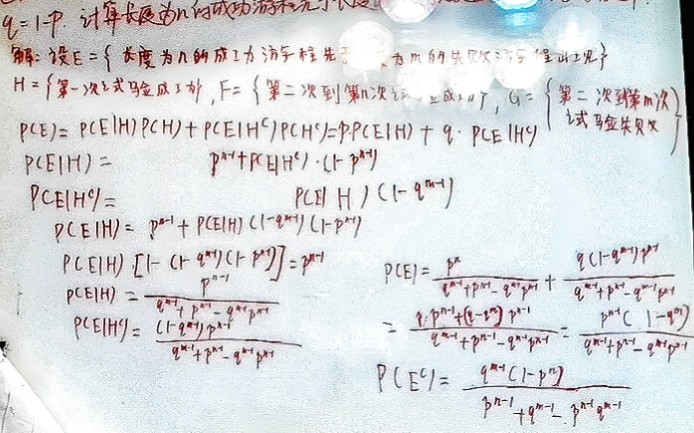 q=1-p. 计算长度为n的成功游程先于长度
解: 设E={长度为n的成功游程先 为m的失败游程出现}
H={第一次试验成功}, F={第二次到第n次试 成功}, G={第二次到第m次试验失败}
P(E)=P(E|H)P(H)+P(E|Hᶜ)P(Hᶜ)=p·P(E|H)+q·P(E|Hᶜ)
P(E|H)= pⁿ⁻¹+P(E|Hᶜ)·(1-pⁿ⁻¹)
P(E|Hᶜ)= P(E|H)(1-qᵐ⁻¹)
P(E|H)=pⁿ⁻¹+P(E|H)(1-qᵐ⁻¹)(1-pⁿ⁻¹)
P(E|H)[1-(1-qᵐ⁻¹)(1-pⁿ⁻¹)]=pⁿ⁻¹
P(E|H)=pⁿ⁻¹/(qᵐ⁻¹+pⁿ⁻¹-qᵐ⁻¹pⁿ⁻¹)
P(E|Hᶜ)=(1-qᵐ⁻¹)pⁿ⁻¹/(qᵐ⁻¹+pⁿ⁻¹-qᵐ⁻¹pⁿ⁻¹)
P(E)=pⁿ/(qᵐ⁻¹+pⁿ⁻¹-qᵐ⁻¹pⁿ⁻¹)+q(1-qᵐ⁻¹)pⁿ⁻¹/(qᵐ⁻¹+pⁿ⁻¹-qᵐ⁻¹pⁿ⁻¹)
=p·pⁿ⁻¹+(q-qᵐ)pⁿ⁻¹/(qᵐ⁻¹+pⁿ⁻¹-qᵐ⁻¹pⁿ⁻¹)=pⁿ⁻¹(1-qᵐ)/(qᵐ⁻¹+pⁿ⁻¹-qᵐ⁻¹pⁿ⁻¹)
P(Eᶜ)=qᵐ⁻¹(1-pⁿ)/(pⁿ⁻¹+qᵐ⁻¹-pⁿ⁻¹qᵐ⁻¹)